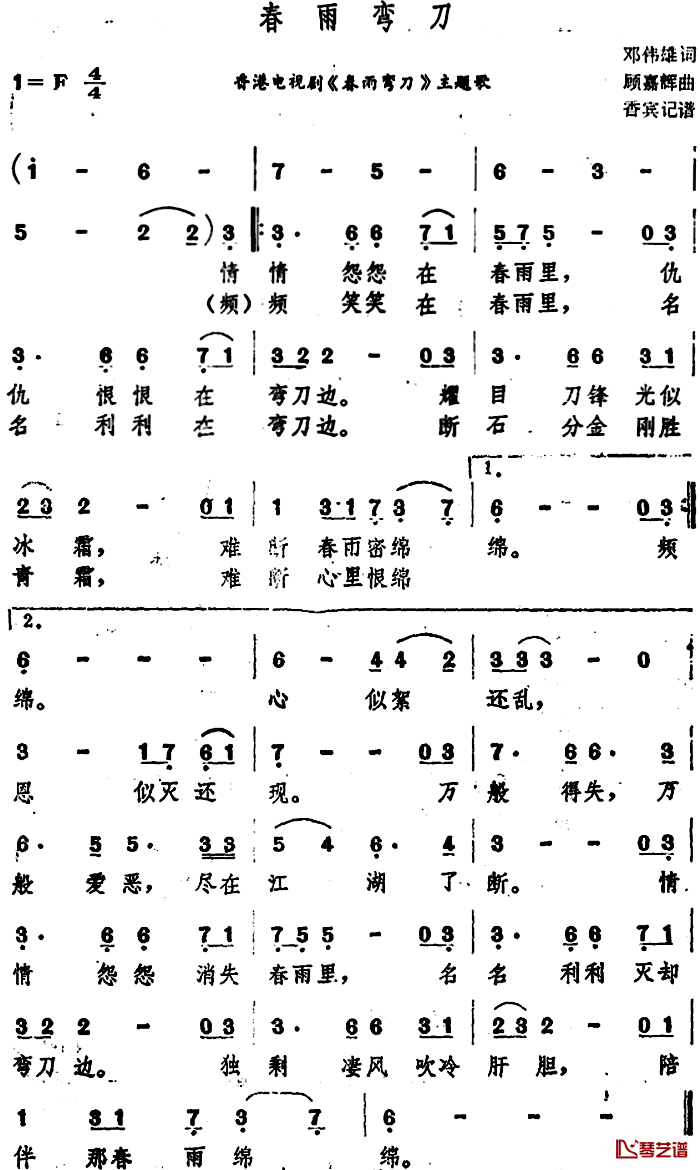 春雨弯刀
邓伟雄词
1=F 4/4 香港电视剧《春雨弯刀》主题歌 顾嘉辉曲
香宾记谱
(1 - 6 - | 7 - 5 - | 6 - 3 - |
5 - 2 2) 3 |: 3. 6 6 7 1 | 5 7 5 - 0 3 |
情 情 怨怨在 春雨里, 仇
(频) 频 笑笑在 春雨里, 名
3. 6 6 7 1 | 3 2 2 2 - 0 3 | 3. 6 6 3 1 |
仇 恨恨在 弯刀边。 耀 目 刀锋光似
名 利利在 弯刀边。 断 石 分金刚胜
1.
2 3 2 - 0 1 | 1 3 1 7 3 7 | 6 - - 0 3 :|
冰霜, 难 断 春雨密绵 绵。 频
青霜, 难 断 心里恨绵
2.
6 - - - | 6 - 4 4 2 | 3 3 3 - 0 |
绵。 心 似絮 还乱,
3 - 1 7 6 1 | 7 - - 0 3 | 7. 6 6. 3 |
恩 似灭还 现。 万 般 得失, 万
6. 5 5. 3 3 | 5 4 6. 4 | 3 - - 0 3 |
般 爱恶, 尽在 江 湖了 断。 情
3. 6 6 7 1 | 7 5 5 - 0 3 | 3. 6 6 7 1 |
情 怨怨 消失 春雨里, 名 名 利利 灭却
3 2 2 - 0 3 | 3. 6 6 3 1 | 2 3 2 - 0 1 |
弯刀边。 独 剩 凄风吹冷 肝胆, 陪
1 3 1 7 3 7 | 6 - - - |
伴 那春 雨绵 绵。
琴艺谱